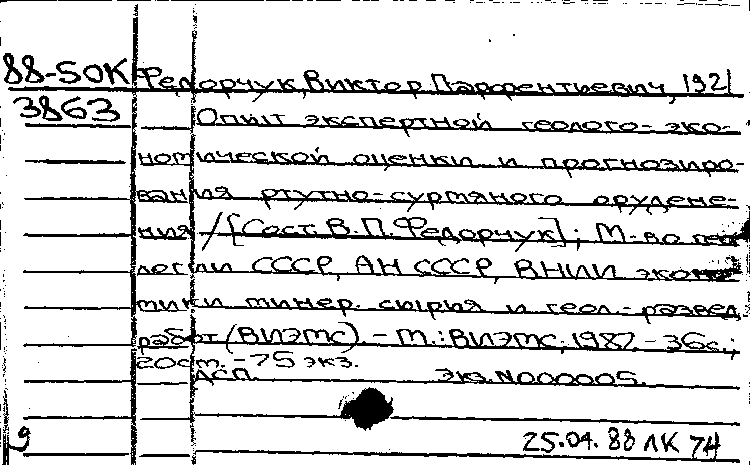 88-50К Федорчук, Виктор Парфентьевич, 1921
3863 Опыт экспертной геолого-эко-
номической оценки и прогнозиро-
вания ртутно-сурмяного орудене-
ния / [Сост. В. П. Федорчук]; М-во гео
логии СССР, АН СССР, ВНИИ эконо
мики минер. сырья и геол.-развед.
работ (ВИЭМС). - М.: ВИЭМС, 1987. - 36с.;
20см. - 75 экз.
ДСП. экз. N000005.
9 25.04.88 ЛК 74